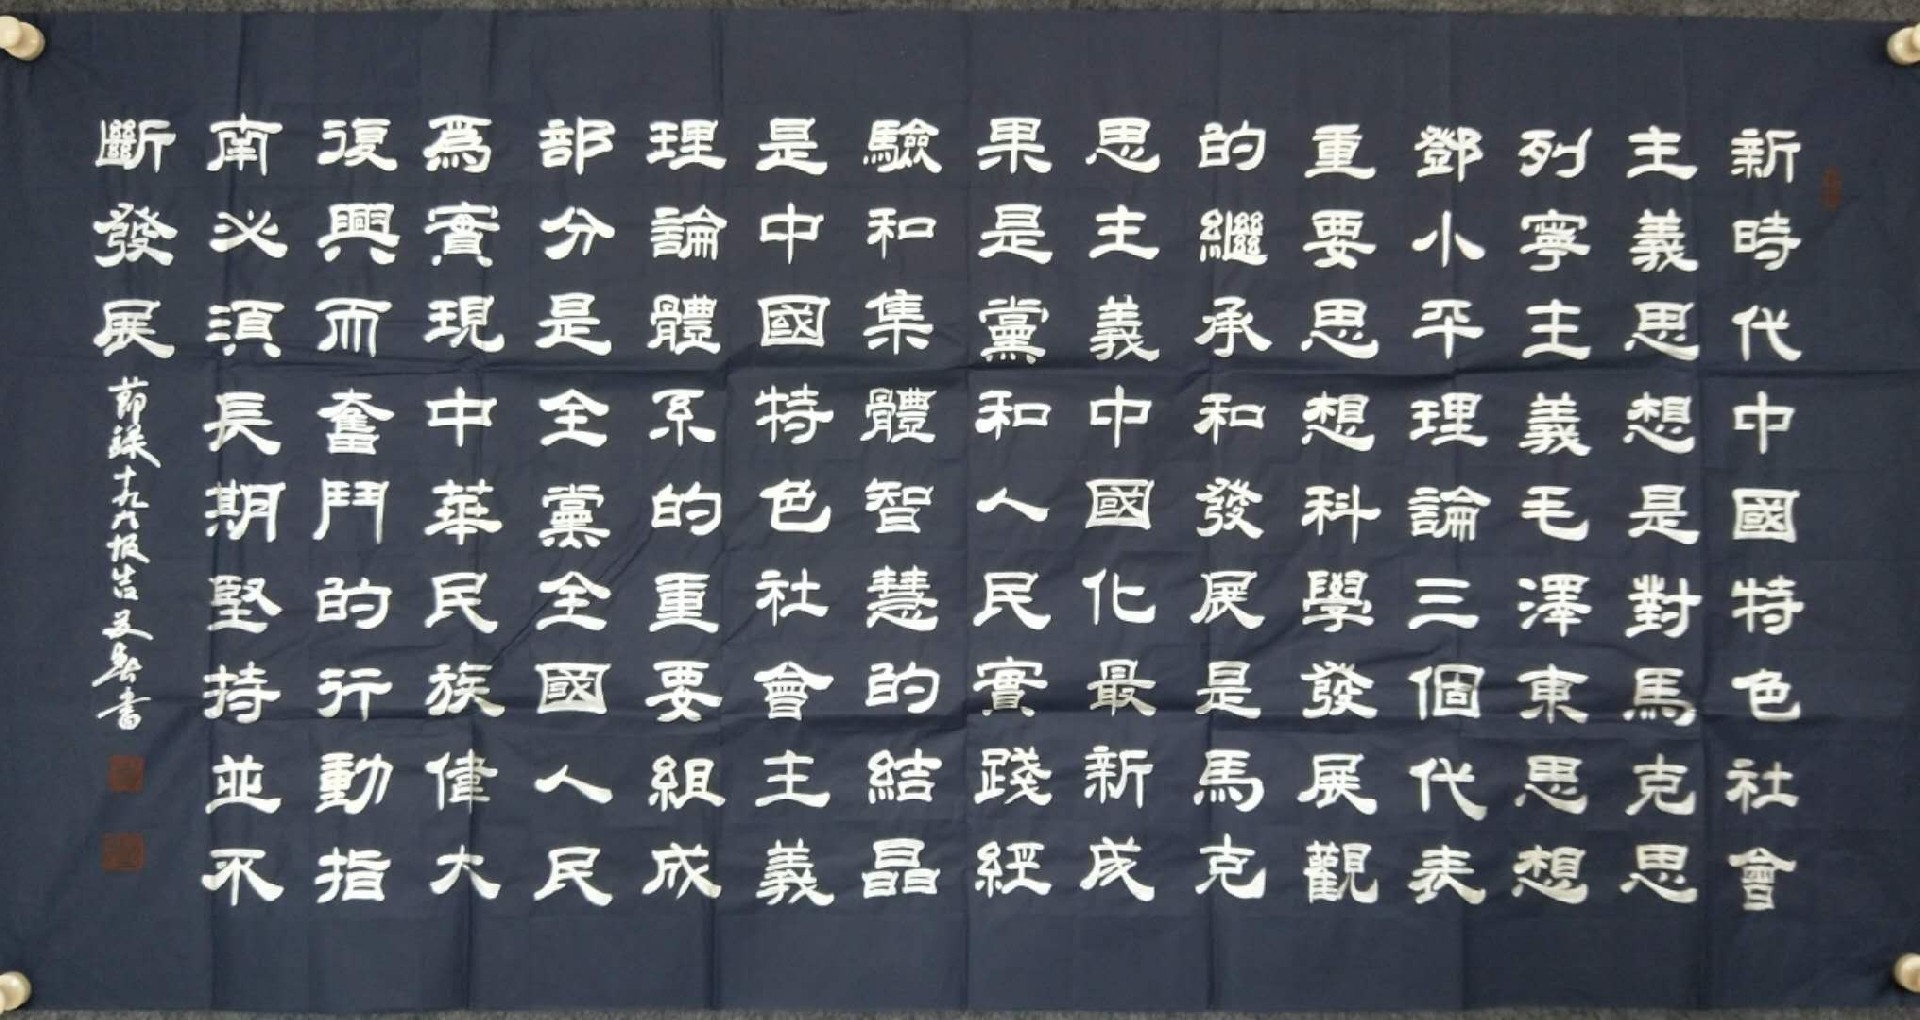 新時代中國特色社會
主義思想是對馬克思
列寧主義毛澤東思想
鄧小平理論三個代表
重要思想科學發展觀
的繼承和發展是馬克
思主義中國化最新成
果是黨和人民實踐經
驗和集體智慧的結晶
是中國特色社會主義
理論體系的重要組成
部分是全黨全國人民
為實現中華民族偉大
復興而奮鬥的行動指
南必須長期堅持並不
斷發展
節錄十九大报告 書